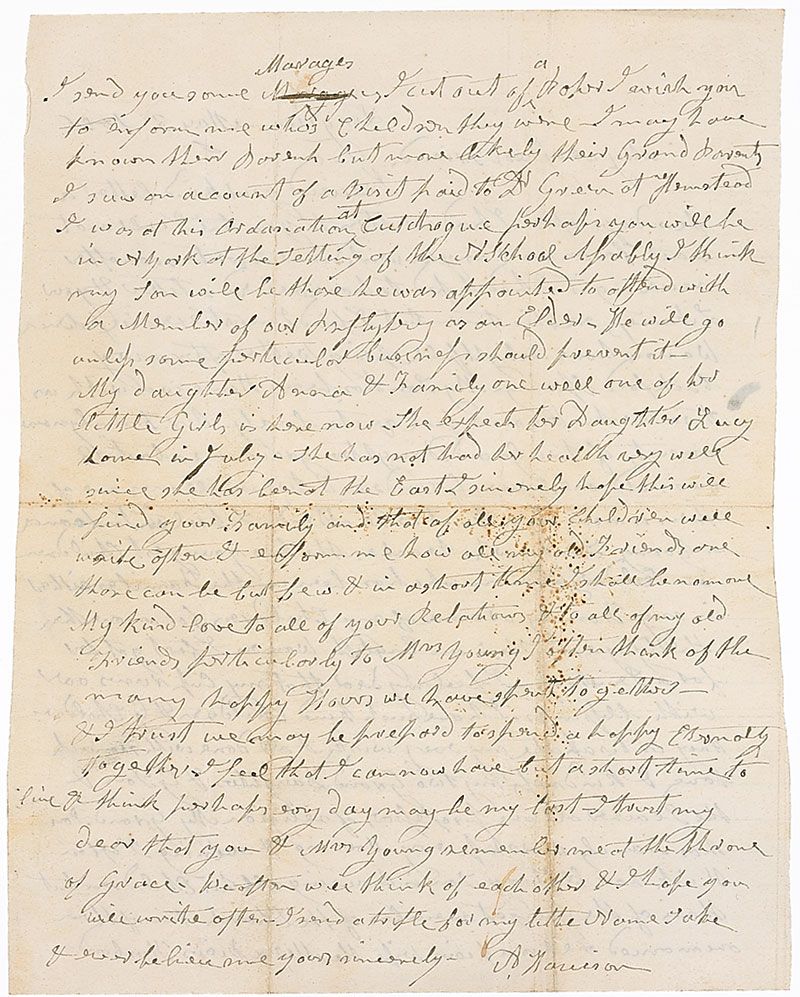 Marages a
I send you some I cut out of Paper I wish you
to inform me who's Children they were - I may have
known their Parents but more likely their Grand Parents
I saw an account of a visit paid to Dr Green at Hemstead
I was at his Ordanation at Cutchogue perhaps you will be
in N York at the setting of the N School I think
my Son will be there he was appointed to attend with
a Member of our Presbytery as an Elder - He will go
unless some particular business should prevent it -
My daughter Anna & Family are well one of her
little Girls is here now - She expects her Daughter Lucy
home in July - She has not had her health very well
since she has been at the East I sincerely hope this will
find your Family and that of all your Children well
write often & inform me how all my old Friends are
there can be but few & in a short time I shall be no more
My kind love to all of your Relations & to all of my old
Friends particularly to Mrs Young I often think of the
many happy Hours we have spent together -
& I trust we may be prepard to spend a happy Eternaty
together I feel that I can now have but a short time to
live & think perhaps every day may be my last - I trust my
dear that you & Mrs Young remember me at the throne
of Grace - We often will think of each other & I hope you
will write often I send a trifle for my little Name Sake
& ever believe me yours sincerely - A Harrison